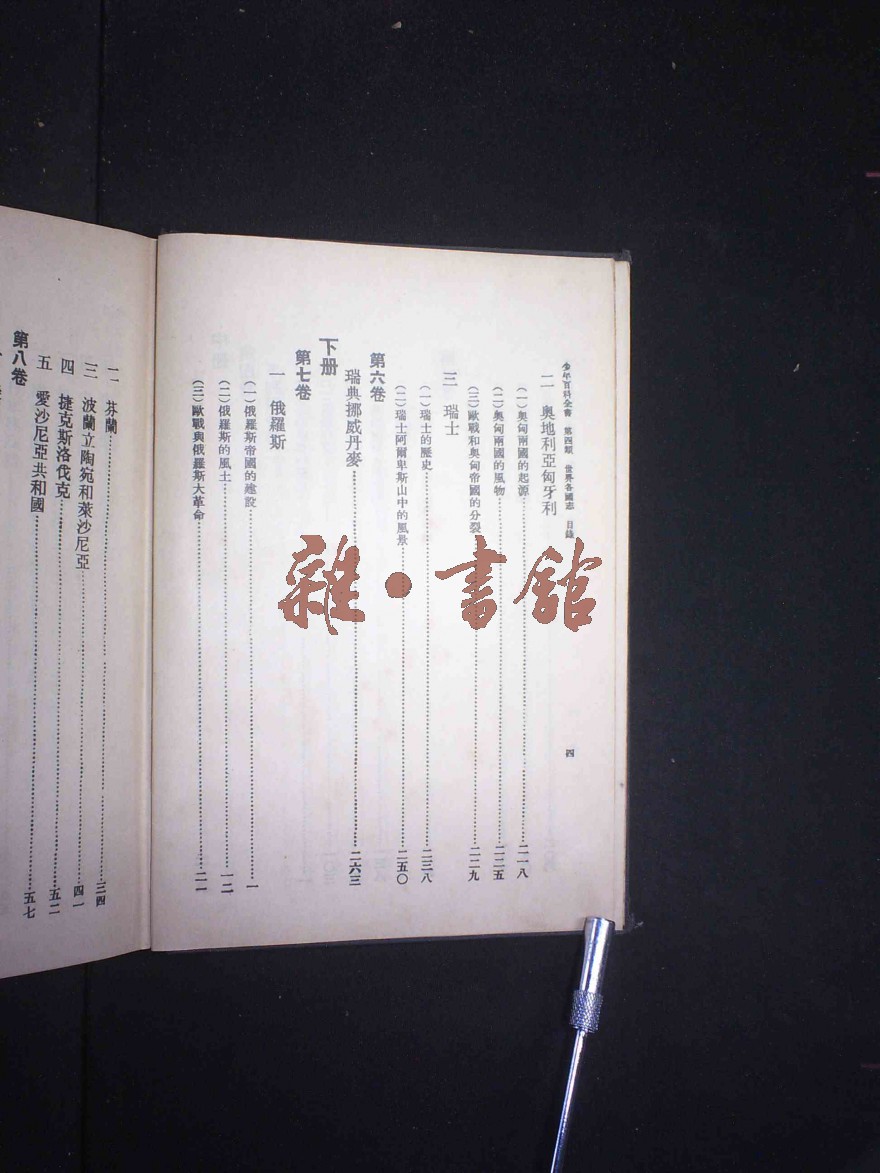 少年百科全書 第四類 世界各國志 目錄 四
二 奧地利亞匈牙利
(一)奧匈兩國的起源 二一八
(二)奧匈兩國的風物 二二五
(三)歐戰和奧匈帝國的分裂 二二九
三 瑞士
(一)瑞士的歷史 二三八
(二)瑞士阿爾卑斯山中的風景 二五〇
第六卷
瑞典挪威丹麥 二六三
下册
第七卷
一 俄羅斯
(一)俄羅斯帝國的建設 一
(二)俄羅斯的風土 一二
(三)歐戰與俄羅斯大革命 二一
二 芬蘭 三四
三 波蘭立陶宛和萊沙尼亞 四一
四 捷克斯洛伐克 五二
五 愛沙尼亞共和國 五七
第八卷
雜·書館